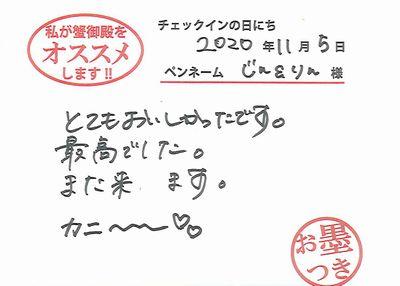 私が蟹御殿を
オススメ
します!!
チェックインの日にち
2020年11月5日
ペンネーム じん&りん 様
とてもおいしかったです。
最高でした。
また来ます。
カニ〜〜♡♡
お墨
つき